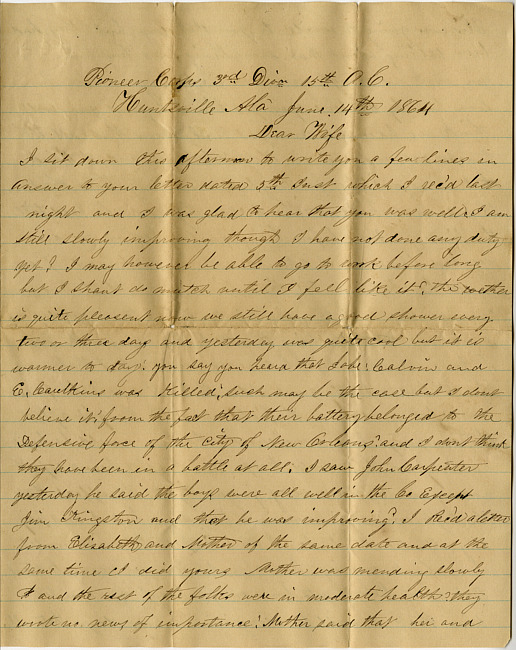 Pioneer Corps 3rd Divn 15th A.C.
Huntsville Ala June 14th 1864
Dear Wife
I sit down this afternoon to write you a few lines in
answer to your letter dated 5th Inst which I rec'd last
night and I was glad to hear that you was well. I am
still slowly improving though I have not done any duty
yet? I may however be able to go to work before long
but I shant do mutch until I fell like it? the wether
is quite pleasent now we still have a good shower every
two or three days and yesterday was quite cool but it is
warmer to day. you say you heard that Calvin and
E. Caulkins was Killed; such may be the case but I dont
believe it; from the fact that their battery belonged to the
Defensive force of the city of New Orleans? and I dont think
they have been in a battle at all; I saw John Carpenter
yesterday he said the boys were all well in the Co Except
Jim Kingston and that he was improving? I Rec'd a letter
from Elisabeth and Mother of the same date and at the
same time I did yours Mother was mending slowly
& and the rest of the folks were in moderate health? they
wrote no news of importance. Mother said that her and